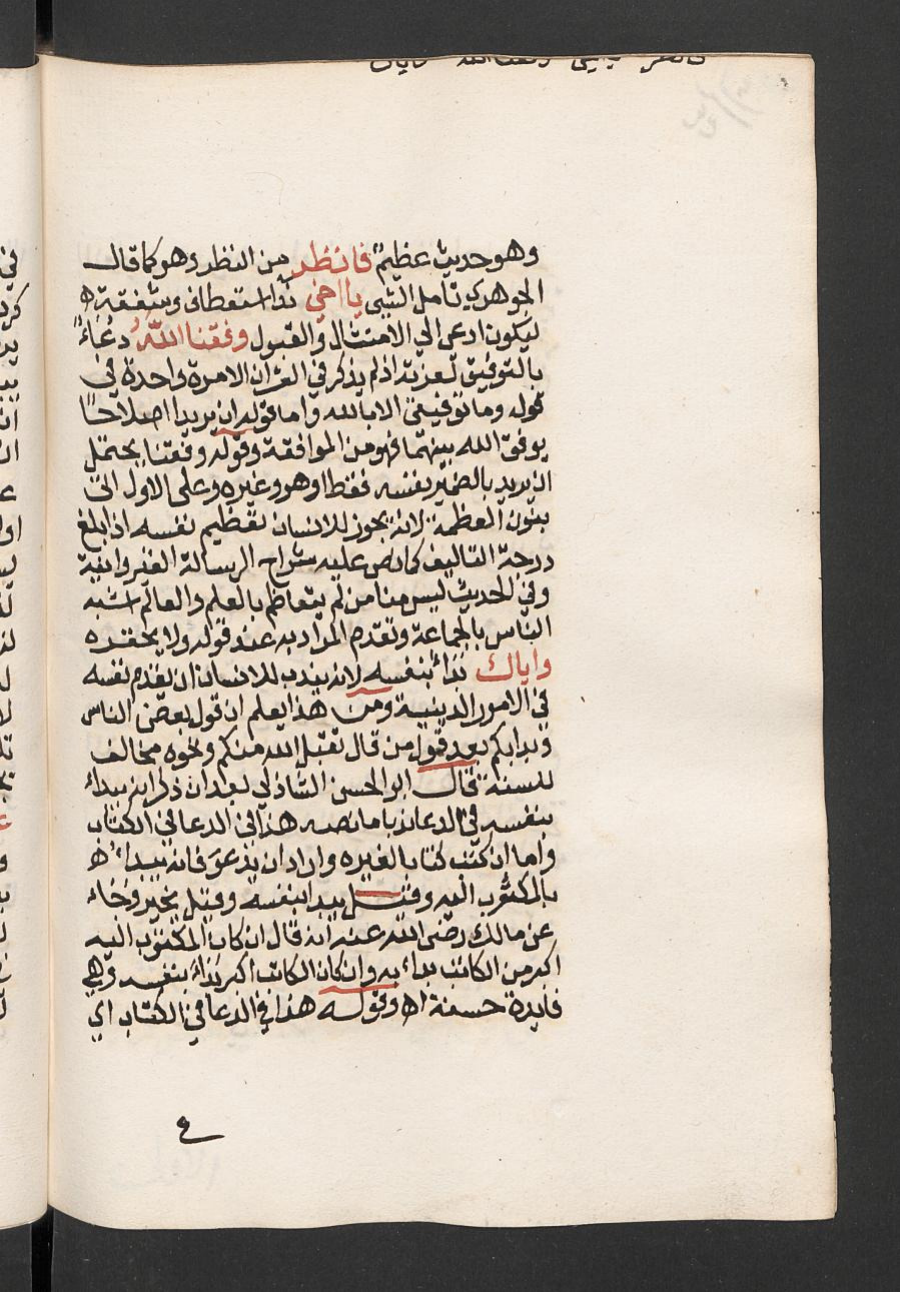 وهو حديث عظيم فانظر من النظر وهو كما قال
الجوهري تامل الشي يا اخي ندا استعطافي وشفقة اه
ليكون ادعى الي الامتثال والقبول وفقنا الله دعاء
بالتوفيق لعزته اذ لم يذكر في القران الا مرة واحدة في
قوله وما توفيقي الا بالله واما قوله ان يريدا اصلاحا
يوفق الله بينهما فهو من الموافقة وقوله وفقنا يحتمل
ان يريد بالضمير نفسه فقط او هو وغيره وعلي الاول اتي
بنون العظمة لانه يجوز للانسان تعظيم نفسه اذا بلغ
درجة التاليف كما نص عليه شراح الرسالة القيروانية
وفي الحديث ليس منا من لم يتعاظم بالعلم والعالم اشبه
الناس بالجماعة وتقدم المراد به عند قوله ولا يحقره
واياك بداء بنفسه لانه يندب للانسان ان يقدم نفسه
في الامور الدينية ومن هذا يعلم ان قول بعض الناس
وبدا بكم بعد قول من قال تقبل الله منكم ونحوه مخالف
للسنة قال ابو الحسن الشاذلي بعد ان ذكر انه يبداء
بنفسه في الدعا ندبا ما نصه هذا في الدعا في الكتاب
واما ان كتب كتابا لغيره واراد ان يدعو فانه يبداء اه
بالمكتوب اليه وقيل يبدا بنفسه وقيل يخير وجاء
عن مالك رضى الله عنه انه قال ان كان المكتوب اليه
اكبر من الكاتب بداء به وان كان الكاتب اكبر بداء بنفسه وهي
فايدة حسنة اه وقوله هذا في الدعا في الكتاب اي